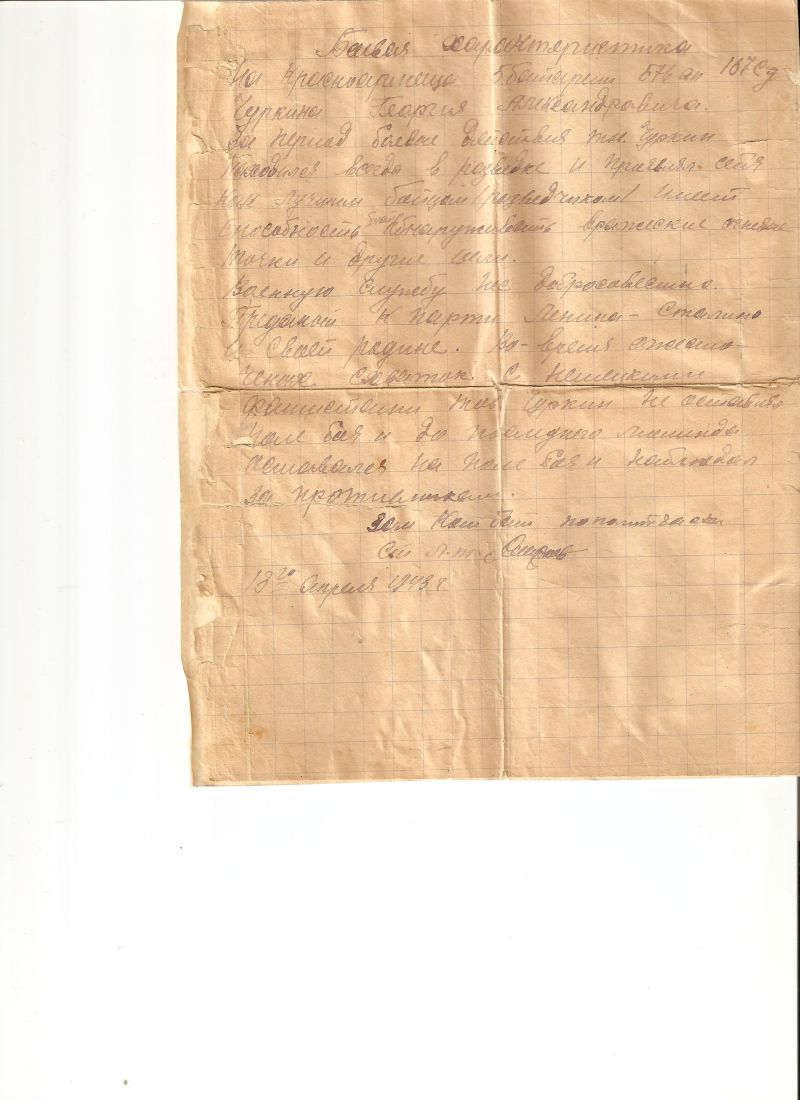 Баевая характеристика
На красноармейца 5 батареи 576 ап 167 сд
Чуркина Георгия Александровича.
За период боевые действия тов. Чуркин
находился всегда в разведке и проявлял себя
как лучшим бойцом /разведчиком/ имеет
способность обнаруживать вражеские огневые
точки и другие цели.
Военную службу нес добросовестно.
Преданый к парти Ленина - Сталина
и своей родине. Во-время ожесто-
ченых схваток с немецкими
фашистами тов Чуркин не оставлял
поле боя и до последнего
оставался на поле боя и наблюдал
за противником.
Зам Ком бат по политчасти
Ст л-т.
13го Апреля 1943 г